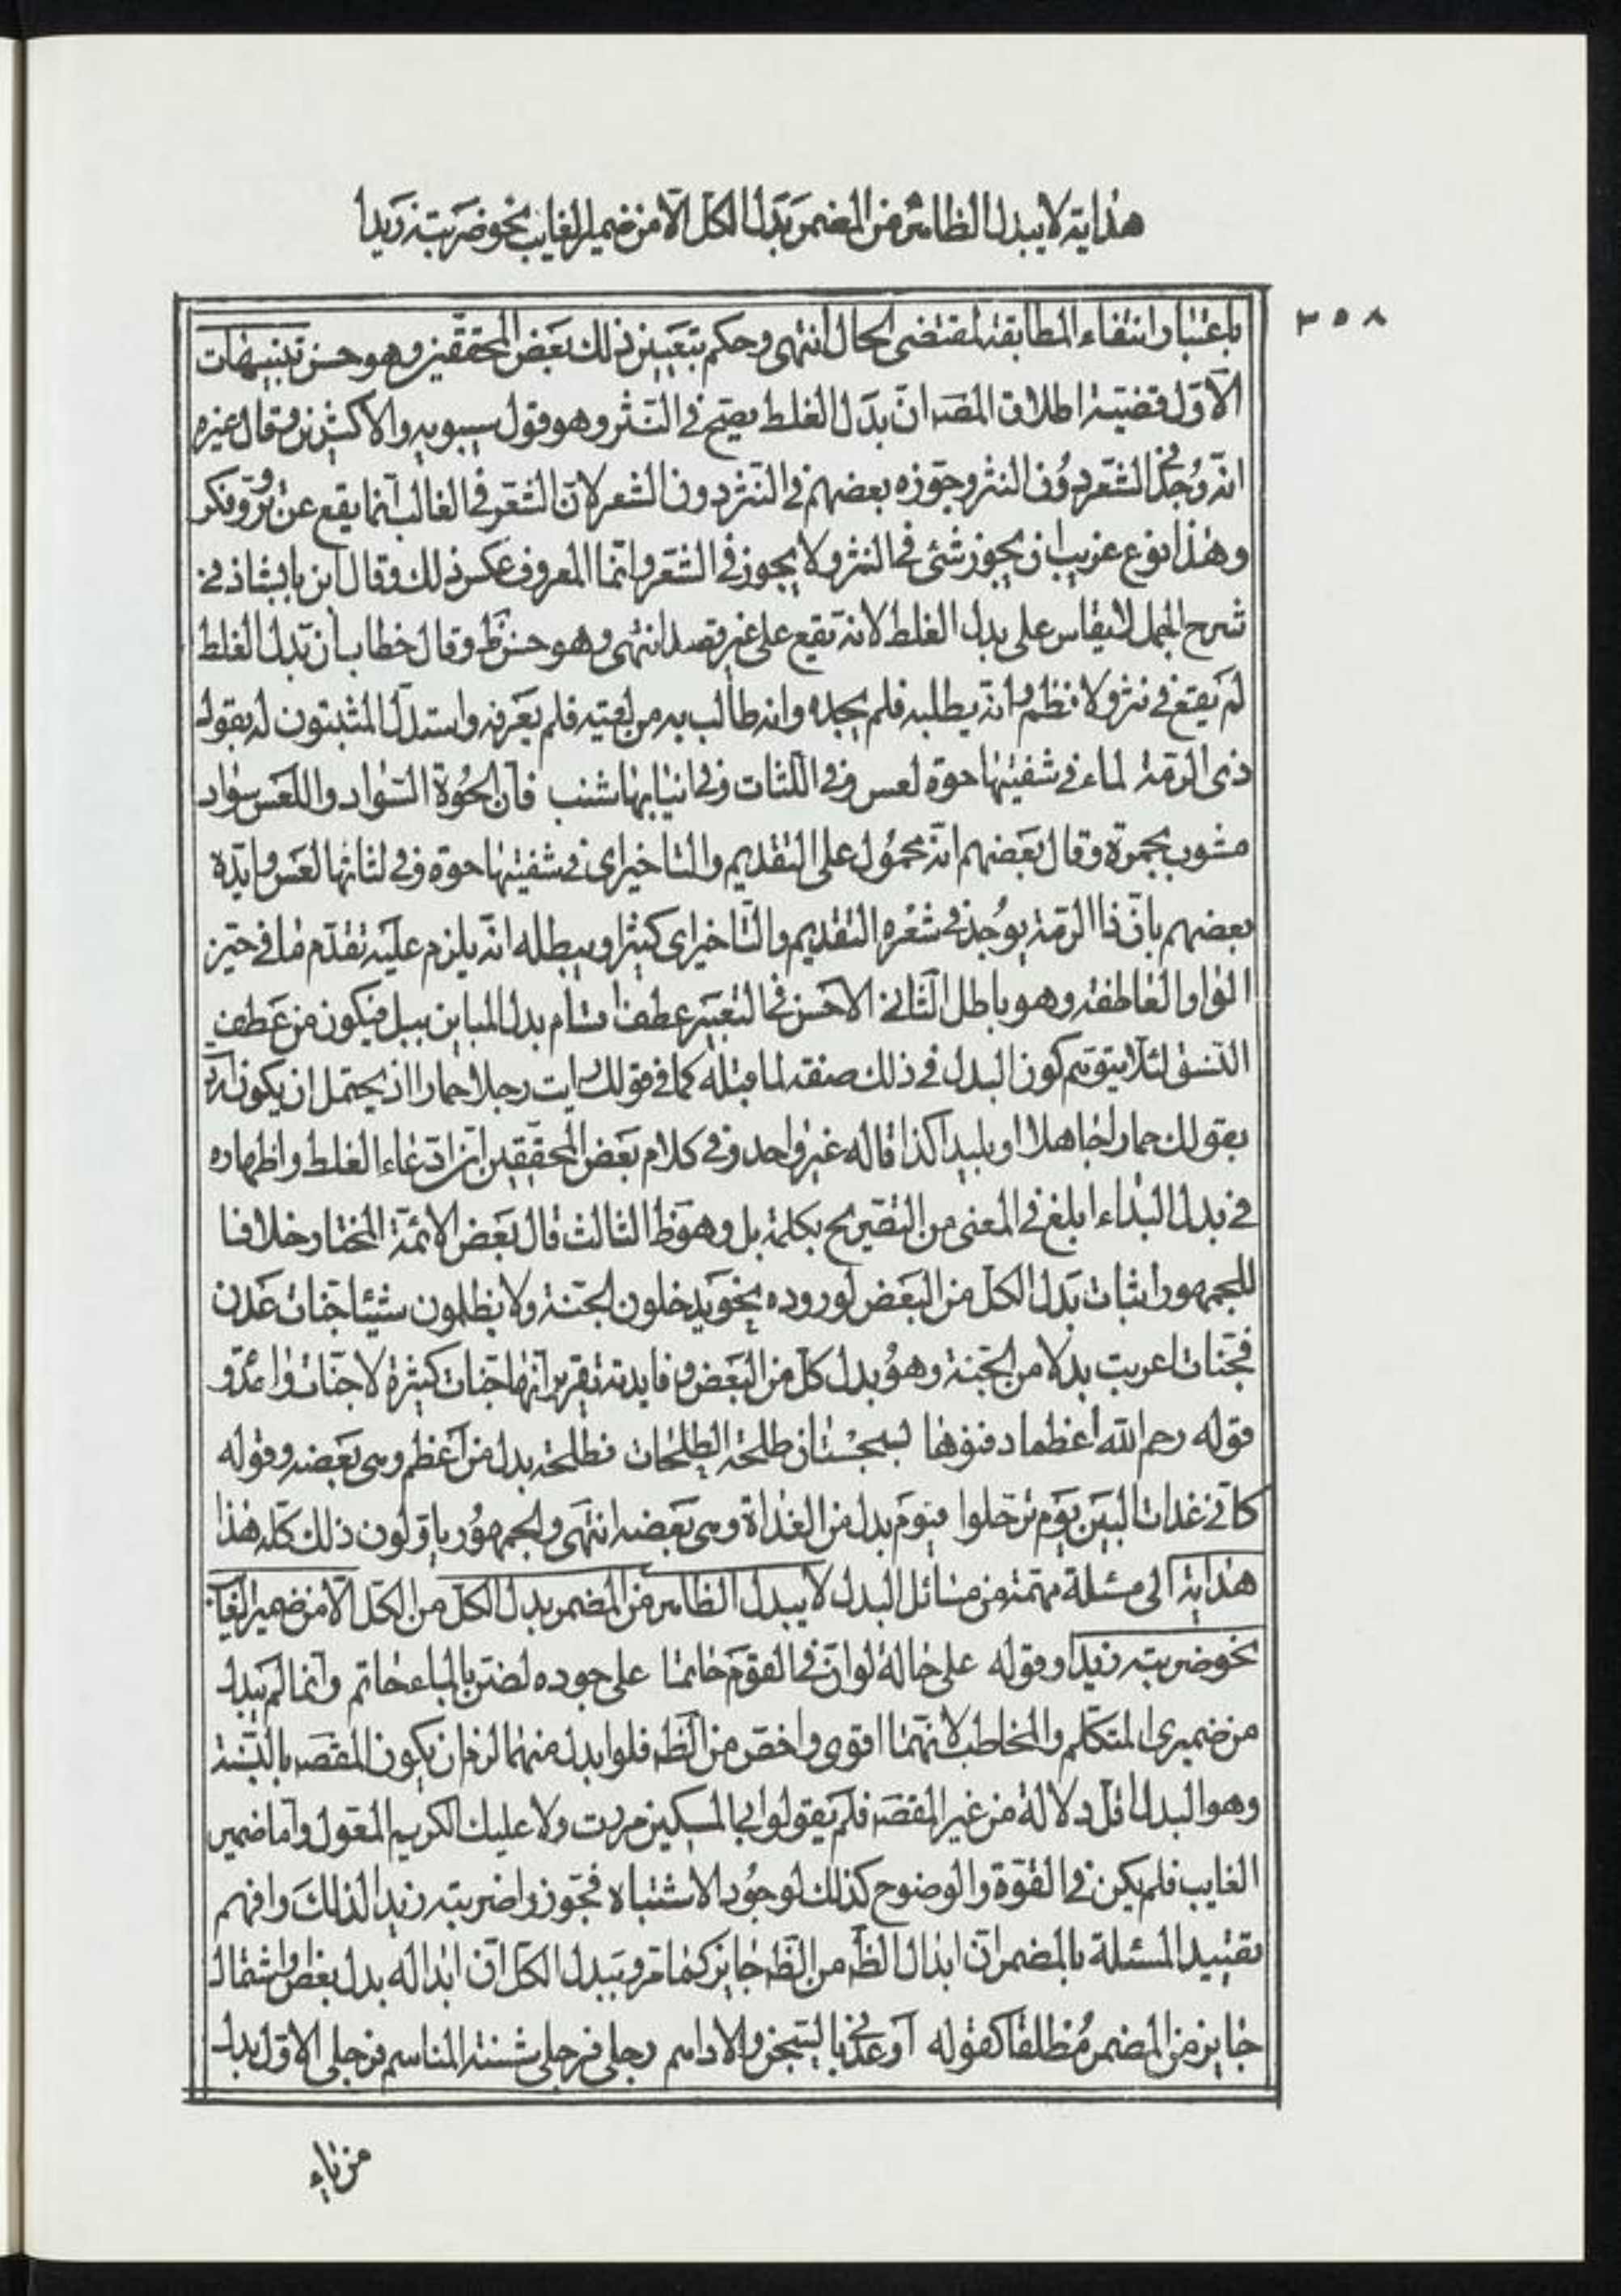 هداية لا يبدل الظاهر من المضمر بدل الكل الا من ضمير الغايب نحو ضربته زيدا
٣٥٨
باعتبار انتفاء المطابقة لمقتضى الحال انتهى وحكم بتعيين ذلك بعض المحققين وهو حسن تنبيهات
الاول قضية اطلاق المص ان بدل الغلط يصح في النثر وهو قول سيبويه والاكثرين وقال غيره
انه وجد في الشعر دون النثر وجوزه بعضهم في النثر دون الشعر لان الشعر في الغالب انما يقع عن تروّ وفكر
وهذا نوع غريب ان يجوز شئ في النثر ولا يجوز في الشعر وانما المعروف عكس ذلك وقال ابن بابشاذ في
شرح الجمل لا يقاس على بدل الغلط لانه يقع على غير قصد انتهى وهو حسن ظ وقال خطاب ان بدل الغلط
لم يقع في نثر ولا نظم وانه يطلبه فلم يجده وانه طالب به من لقيته فلم يعرفه واستدل المثبتون له بقول
ذى الرمة لماء في شفتيها حوة لعس وفى اللثات وفى انيابها شنب فان الحوة السواد واللعس سواد
مشوب بحمرة وقال بعضهم انه محمول على التقديم والتاخير اى في شفتيها حوة وفى لثاتها لعس وايده
بعضهم بان ذا الرمة يوجد في شعره التقديم والتاخير اى كثيرا ويبطله انه يلزم عليه تقدم ما في حيز
الواو العاطفة وهو باطل الثانى الاحسن في التعبير عطف اقسام بدل المباين ببل فيكون من عطف
النسق لئلا يتوهم كون البدل في ذلك صفة لما قبله كما في قولك رايت رجلا حمارا اذ يحتمل ان يكون اريد
بقولك حمارا جاهلا او بليدا كذا قاله غير واحد وفى كلام بعض المحققين ان ادعاء الغلط واظهاره
في بدل البداء ابلغ في المعنى من التصريح بكلمة بل وهو ظ الثالث قال بعض الائمة المختار خلافا
للجمهور اثبات بدل الكل من البعض لوروده نحو يدخلون الجنة ولا يظلمون شيئا جنات عدن
فجنات اعربت بدلا من الجنة وهو بدل كل من البعض وفايدته تقرير انها جنات كثيرة لا جنات واحدة و
قوله رحم الله اعظما دفنوها بسجستان طلحة الطلحات فطلحة بدل من اعظم وهى بعضه وقوله
كانى غداة البين يوم ترحلوا فيوم بدل من الغداة وهى بعضه انتهى والجمهور ياولون ذلك كله هذا
هداية الى مسئلة مهمة من مسائل البدل لا يبدل الظاهر من المضمر بدل الكل من الكل الا من ضمير الغايب
نحو ضربته زيدا وقوله على حالة لو ان في القوم حاتما على جوده لضن بالماء حاتم وانما لم يبدل
من ضميرى المتكلم والمخاطب لانهما اقوى واخص من الظ فلو ابدل منهما لزم ان يكون المقص بالنسبة
وهو البدل اقل دلالة من غير المقص فلم يقولوا بى المسكين مررت ولا عليك الكريم المعول واما ضمير
الغايب فلم يكن في القوة والوضوح كذلك لوجود الاشتباه فجوزوا ضربته زيدا لذلك وافهم
تقييد المسئلة بالمضمر ان ابدال الظ من الظ جايز كما مر وببدل الكل ان ابداله بدل بعض واشتمال
جايز من المضمر مطلقا كقوله اوعدنى بالسجن والاداهم رجلى فرجلى شثنة المناسم فرجلى الاول بدل
من ياء